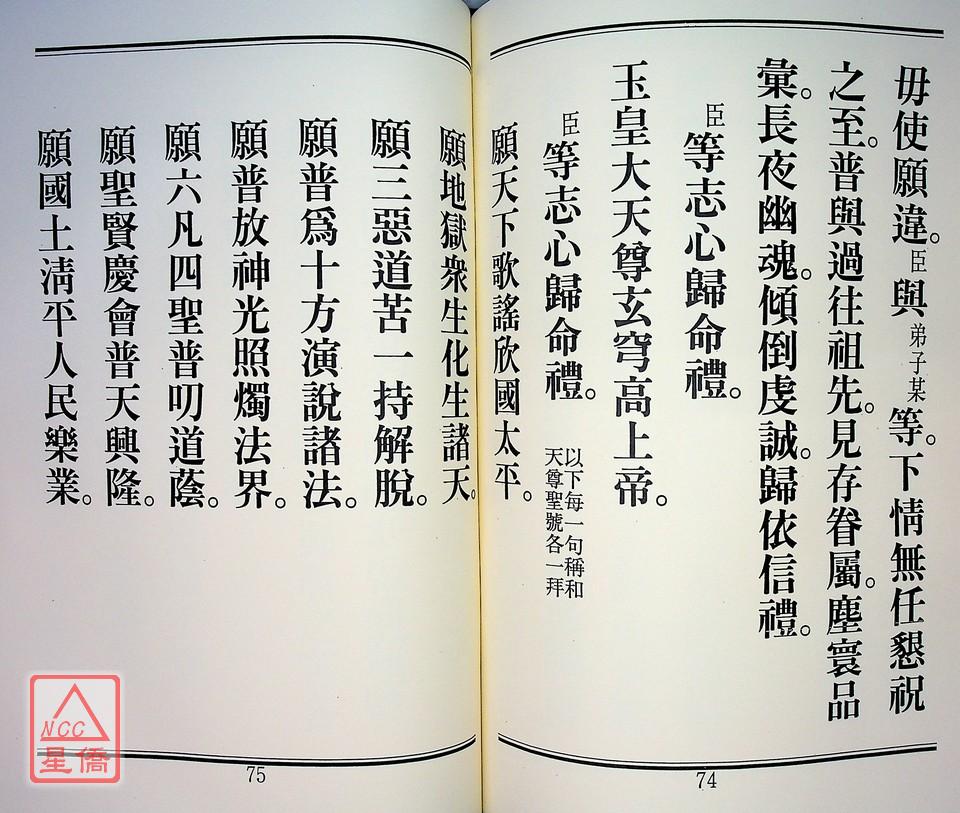 毋使願違。臣與弟子某等。下情無任懇祝
之至。普與過往祖先。見存眷屬。塵寰品
彙。長夜幽魂。傾倒虔誠。歸依信禮。
臣等志心歸命禮。
玉皇大天尊玄穹高上帝。
臣等志心歸命禮。
以下每一句稱和
天尊聖號各一拜
願天下歌謠欣國太平。
74
願地獄衆生化生諸天。
願三惡道苦一持解脫。
願普爲十方演說諸法。
願普放神光照燭法界。
願六凡四聖普叨道蔭。
願聖賢慶會普天興隆。
願國土淸平人民樂業。
75
NCC
星僑